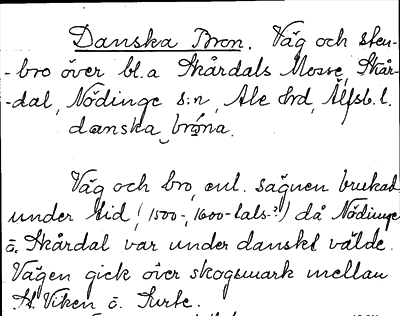 Danska Bron. Väg och sten-
-bro över bl.a Skårdals Mosse, Skår-
-dal, Nödinge s:n, Ale Hrd, Älfsb. l.
danska bróna.
Väg och bro, enl. sägnen brukad
under tid (1500-, 1600-tals-?) då Nödinge
o. Skårdal var under danskt välde.
Vägen gick över skogsmark mellan
St. Viken o. Surte.